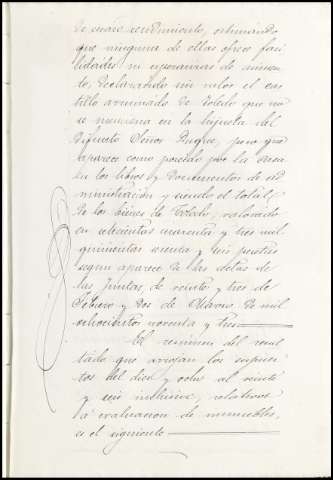 de escaso rendimiento, estimando
que ninguna de ellas ofrece faci
lidades ni esperanzas de aumen
to, declarando sin valor el cas
tillo arruinado de Toledo que no
se menciona en la hijuela del
difunto Señor Duque, pero que
aparece como poseido por la casa
en los libros y documentos de ad
ministración y siendo el total,
de los bienes de Toledo, valorado
en ochocientas cuarenta y tres mil
quinientas sesenta y seis pesetas
segun aparece de las actas de
las Juntas de veinte y tres de
Febrero y dos de Marzo de mil
ochocientos noventa y tres
El resumen del resul
tado que arrojan los supues
tos del diez y ocho al veinte
y seis inclusive, relativos
á evaluacion de inmuebles,
es el siguiente